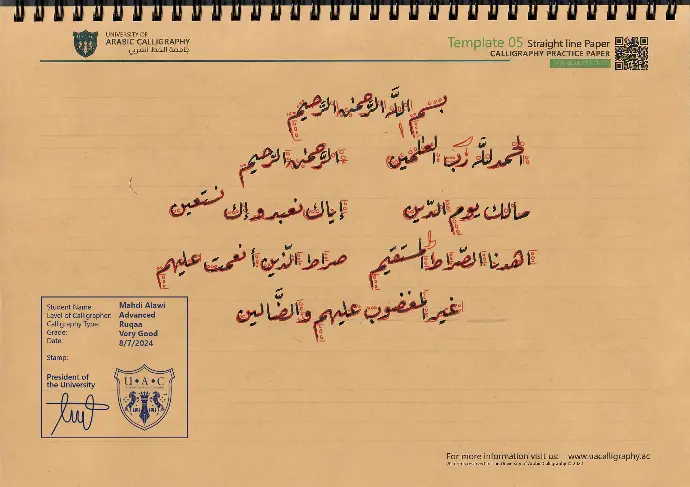 UNIVERSITY OF
ARABIC CALLIGRAPHY
جامعة الخط العربي
Template 05 Straight line Paper
CALLIGRAPHY PRACTICE PAPER
بسم الله الرحمن الرحيم
الحمد لله رب العلمين الرحمن الرحيم
مالك يوم الدين إياك نعبد وإك نستعين
اهدنا الصراط المستقيم صراط الذين أنعمت عليهم
غير المغضوب عليهم والضالين
Student Name Mahdi Alawi
Level of Calligrapher: Advanced
Calligraphy Type: Ruqaa
Grade: Very Good
Date: 8/7/2024
Stamp:
President of
the University
U•A•C
For more information visit us: www.uacalligraphy.ac